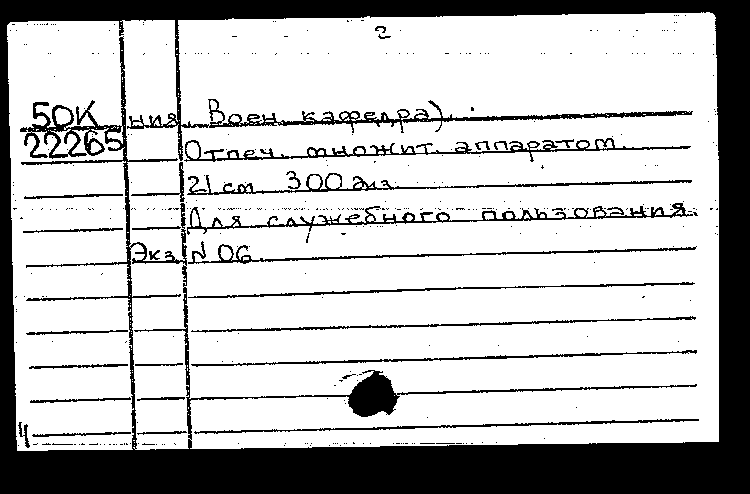 2
50К ния. Воен. кафедра).
22265 Отпеч. множит. аппаратом.
21 cm 300 экз.
Для служебного пользования.
Экз. N 06.